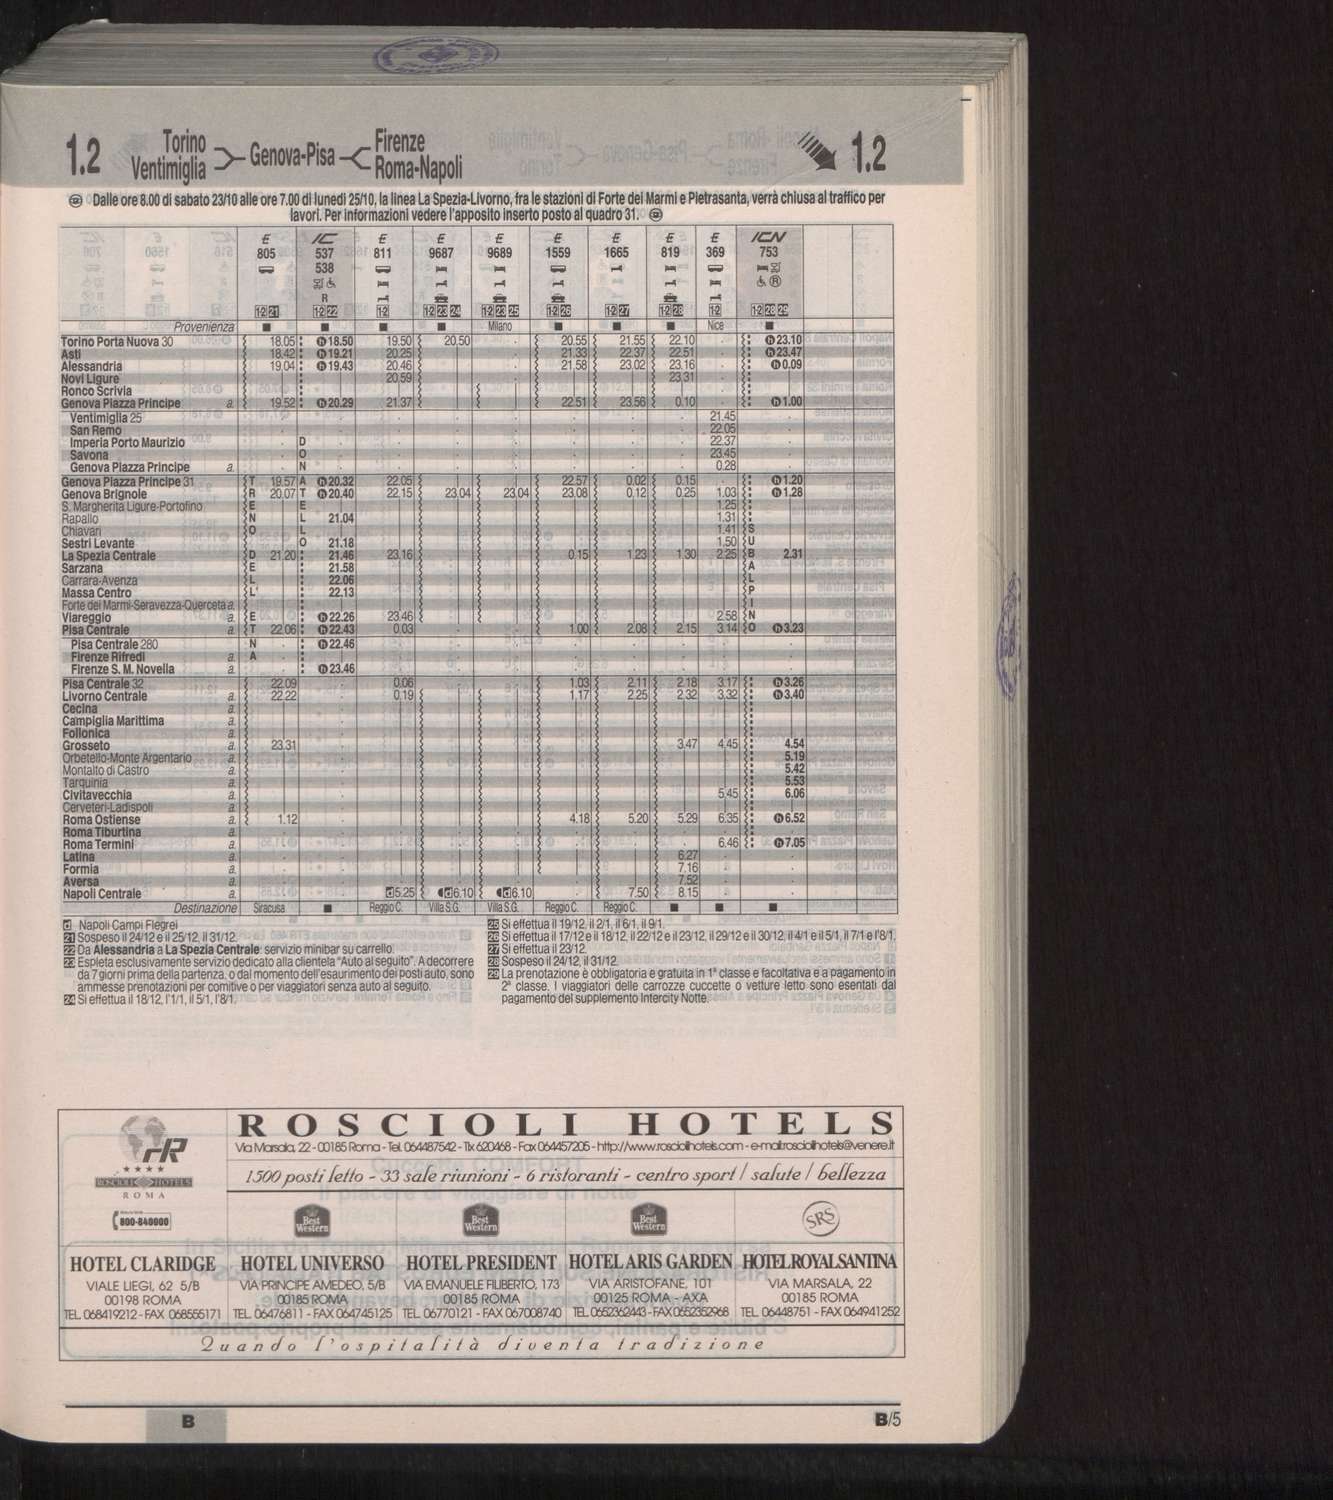 1.2 Torino Ventimiglia Genova-Pisa Firenze Roma-Napoli 1.2
Dalle ore 8.00 di sabato 23/10 alle ore 7.00 di lunedì 25/10, la linea La Spezia-Livorno, fra le stazioni di Forte dei Marmi e Pietrasanta, verrà chiusa al traffico per
lavori. Per informazioni vedere l'apposito inserto posto al quadro 31.
E IC E E E E E E E ICN
805 537 811 9687 9689 1559 1665 819 369 753
538
R
1·2 21 1·2 22 1·2 1·2 23 24 1·2 23 25 1·2 26 1·2 27 1·2 28 1·2 1·2 28 29
Provenienza ■ ■ ■ ■ Milano ■ ■ ■ Nice ■
Torino Porta Nuova 30 18.05 h 18.50 19.50 20.50 . 20.55 21.55 22.10 . h 23.10
Asti 18.42 h 19.21 20.25 . 21.33 22.37 22.51 . h 23.47
Alessandria 19.04 h 19.43 20.46 . 21.58 23.02 23.16 . h 0.09
Novi Ligure 20.59 23.31
Ronco Scrivia
Genova Piazza Principe a. 19.52 h 20.29 21.37 22.51 23.56 0.10 . h 1.00
Ventimiglia 25 21.45
San Remo 22.05
Imperia Porto Maurizio 22.37
Savona 23.45
Genova Piazza Principe a. 0.28
Genova Piazza Principe 31 19.57 h 20.32 22.05 22.57 0.02 0.15 . h 1.20
Genova Brignole 20.07 h 20.40 22.15 23.04 23.04 23.08 0.12 0.25 1.03 h 1.28
S. Margherita Ligure-Portofino 1.25
Rapallo 21.04 1.31
Chiavari 1.41
Sestri Levante 21.18 1.50
La Spezia Centrale 21.20 21.46 23.16 0.15 1.23 1.30 2.25 2.31
Sarzana 21.58
Carrara-Avenza 22.06
Massa Centro 22.13
Forte dei Marmi-Seravezza-Querceta a.
Viareggio a. h 22.26 23.46 2.58
Pisa Centrale a. 22.06 h 22.43 0.03 1.00 2.08 2.15 3.14 h 3.23
TRENO DEL L'ETNA
DONATELLO
SUBALPINO
Pisa Centrale 280 h 22.46
Firenze Rifredi a.
Firenze S. M. Novella a. h 23.46
Pisa Centrale 32 22.09 0.06 1.03 2.11 2.18 3.17 h 3.26
Livorno Centrale a. 22.22 0.19 1.17 2.25 2.32 3.32 h 3.40
Cecina a.
Campiglia Marittima a.
Follonica a.
Grosseto a. 23.31 3.47 4.45 4.54
Orbetello-Monte Argentario a. 5.19
Montalto di Castro a. 5.42
Tarquinia a. 5.53
Civitavecchia a. 5.45 6.06
Cerveteri-Ladispoli a.
Roma Ostiense a. 1.12 4.18 5.20 5.29 6.35 h 6.52
Roma Tiburtina a.
Roma Termini a. 6.46 h 7.05
Latina a. 6.27
Formia a. 7.16
Aversa a. 7.52
Napoli Centrale a. d 5.25 d 6.10 d 6.10 7.50 8.15
Destinazione Siracusa ■ Reggio C. Villa S.G. Villa S.G. Reggio C. Reggio C. ■ ■ ■
d Napoli Campi Flegrei
21 Sospeso il 24/12 e il 25/12, il 31/12.
22 Da Alessandria a La Spezia Centrale: servizio minibar su carrello.
23 Espleta esclusivamente servizio dedicato alla clientela "Auto al seguito". A decorrere
da 7 giorni prima della partenza, o dal momento dell'esaurimento dei posti auto, sono
ammesse prenotazioni per comitive o per viaggiatori senza auto al seguito.
24 Si effettua il 18/12, l'1/1, il 5/1, l'8/1.
25 Si effettua il 19/12, il 2/1, il 6/1, il 9/1.
26 Si effettua il 17/12 e il 18/12, il 22/12 e il 23/12, il 29/12 e il 30/12, il 4/1 e il 5/1, il 7/1 e l'8/1.
27 Si effettua il 23/12.
28 Sospeso il 24/12, il 31/12.
29 La prenotazione è obbligatoria e gratuita in 1ª classe e facoltativa e a pagamento in
2ª classe. I viaggiatori delle carrozze cuccette o vetture letto sono esentati dal
pagamento del supplemento Intercity Notte.
ROSCIOLI HOTELS
Via Marsala, 22 - 00185 Roma - Tel. 064487542 - Tlx 620468 - Fax 064457205 - http://www.rosciolihotels.com - e-mail:rosciolihotels@venere.it
1500 posti letto - 33 sale riunioni - 6 ristoranti - centro sport / salute / bellezza
ROSCIOLI HOTELS
ROMA
800-840000
Best Western
Best Western
Best Western
SRS
HOTEL CLARIDGE
VIALE LIEGI, 62 5/B
00198 ROMA
TEL. 068419212 - FAX 068555171
HOTEL UNIVERSO
VIA PRINCIPE AMEDEO, 5/B
00185 ROMA
TEL. 06476811 - FAX 064745125
HOTEL PRESIDENT
VIA EMANUELE FILIBERTO, 173
00185 ROMA
TEL. 06770121 - FAX 067008740
HOTEL ARIS GARDEN
VIA ARISTOFANE, 101
00125 ROMA - AXA
TEL. 0652362443 - FAX 0652352968
HOTEL ROYAL SANTINA
VIA MARSALA, 22
00185 ROMA
TEL. 06448751 - FAX 064941252
Quando l'ospitalità diventa tradizione
B
B/5